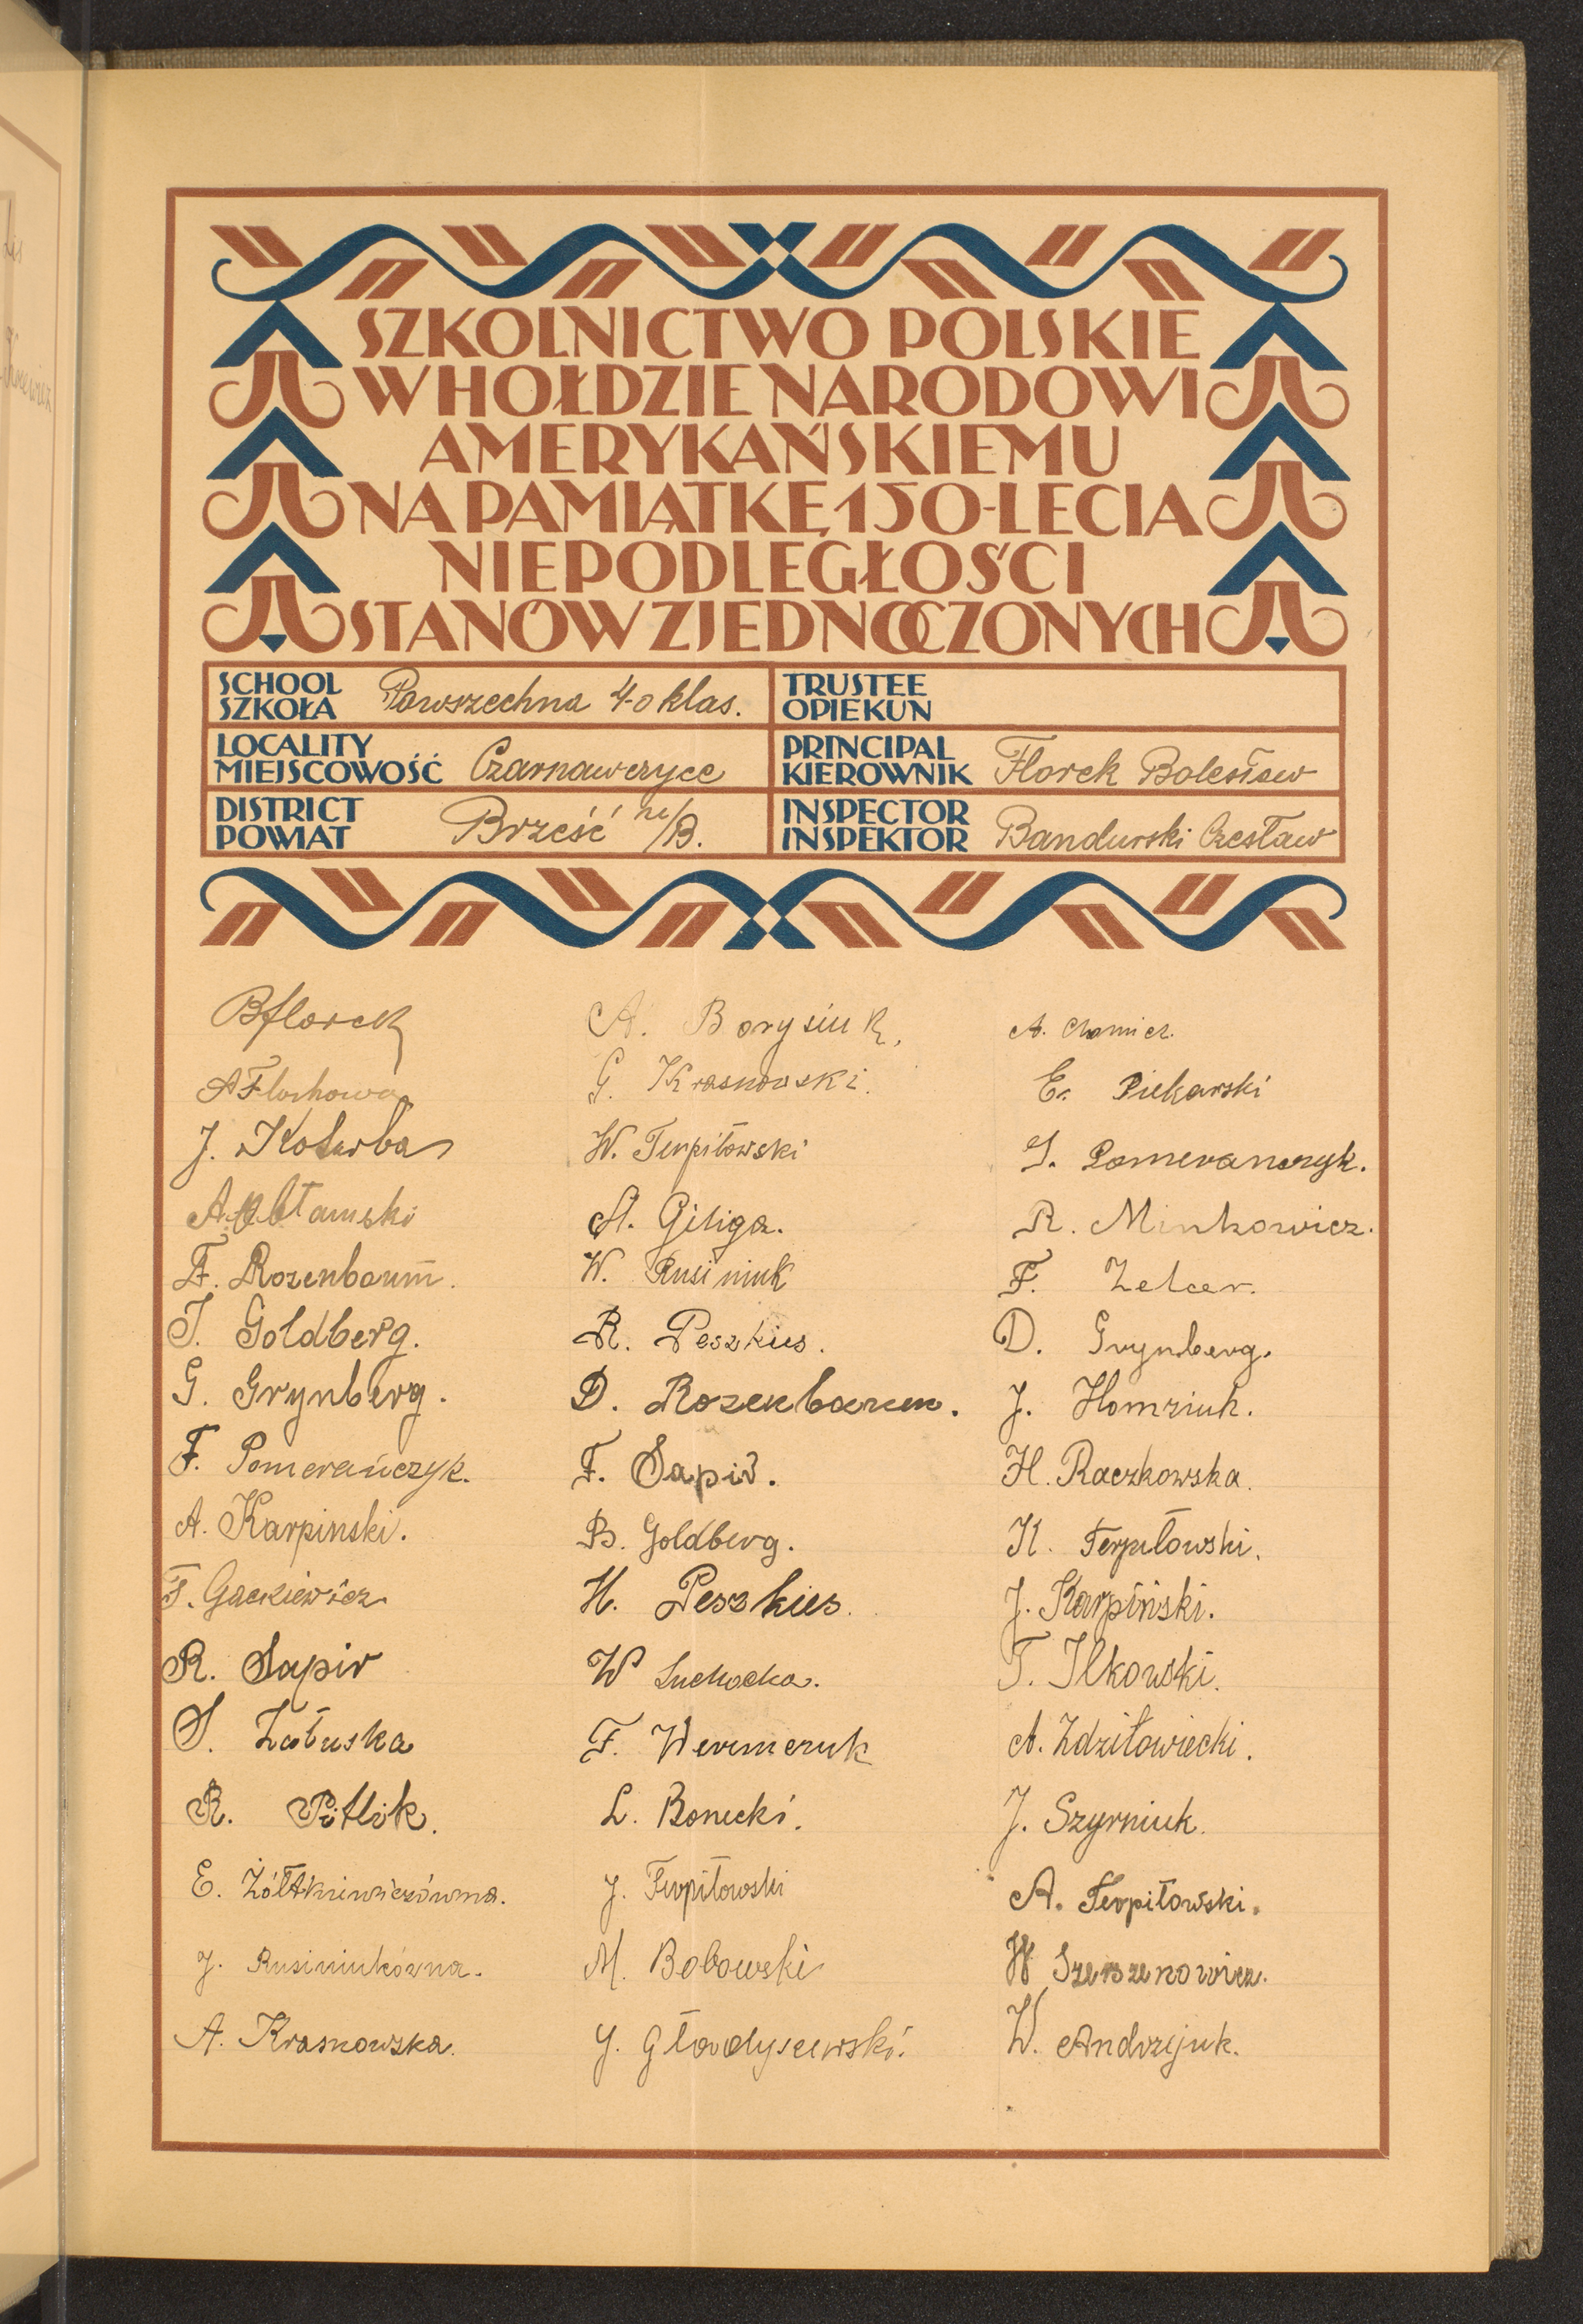 SZKOLNICTWO POLSKIE
W HOŁDZIE NARODOWI
AMERYKAŃSKIEMU
NA PAMIĄTKĘ 150-LECIA
NIEPODLEGŁOŚCI
STANÓW ZJEDNOCZONYCH
SCHOOL
SZKOŁA
Powszechna 4-o klas.
TRUSTEE
OPIEKUN
LOCALITY
MIEJSCOWOŚĆ
Czarnawczyce
PRINCIPAL
KIEROWNIK
Florek Bolesław
DISTRICT
POWIAT
Brześć n/B.
INSPECTOR
INSPEKTOR
Bandurski Czesław
BFlorek
J. Koturba
F. Rozenbaum.
J. Goldberg.
G. Grynberg.
F. Pomerańczyk.
A. Karpinski.
F. Gackiewicz
R. Sapir
S. Załuska
R. Pitlik.
E. Żółtkniewiczówna.
J. Rusiniukówna.
A. Krasnowska.
A. Borysiuk.
G. Krasnowski.
W. Terpiłowski
A. Giliga.
W. Rusiniuk
R. Peszkies.
D. Rozenbaum.
F. Sapir.
B. Goldberg.
H. Peszkies.
W Suchocka.
F. Weremczuk
L. Bonecki.
J. Terpiłowski
M. Bobowski
J. Gładysewski.
A. Chomicz.
E. Piekarski
J. Pomeranczyk.
R. Minkowicz.
F. Zelcer.
D. Grynberg.
J. Homziuk.
H. Raczkowska.
K. Terpiłowski.
J. Karpiński.
T. Ilkowski.
A. Zdziłowiecki.
J. Szyrniuk.
A. Terpiłowski.
W Szerszenowicz.
W. Andrzejuk.